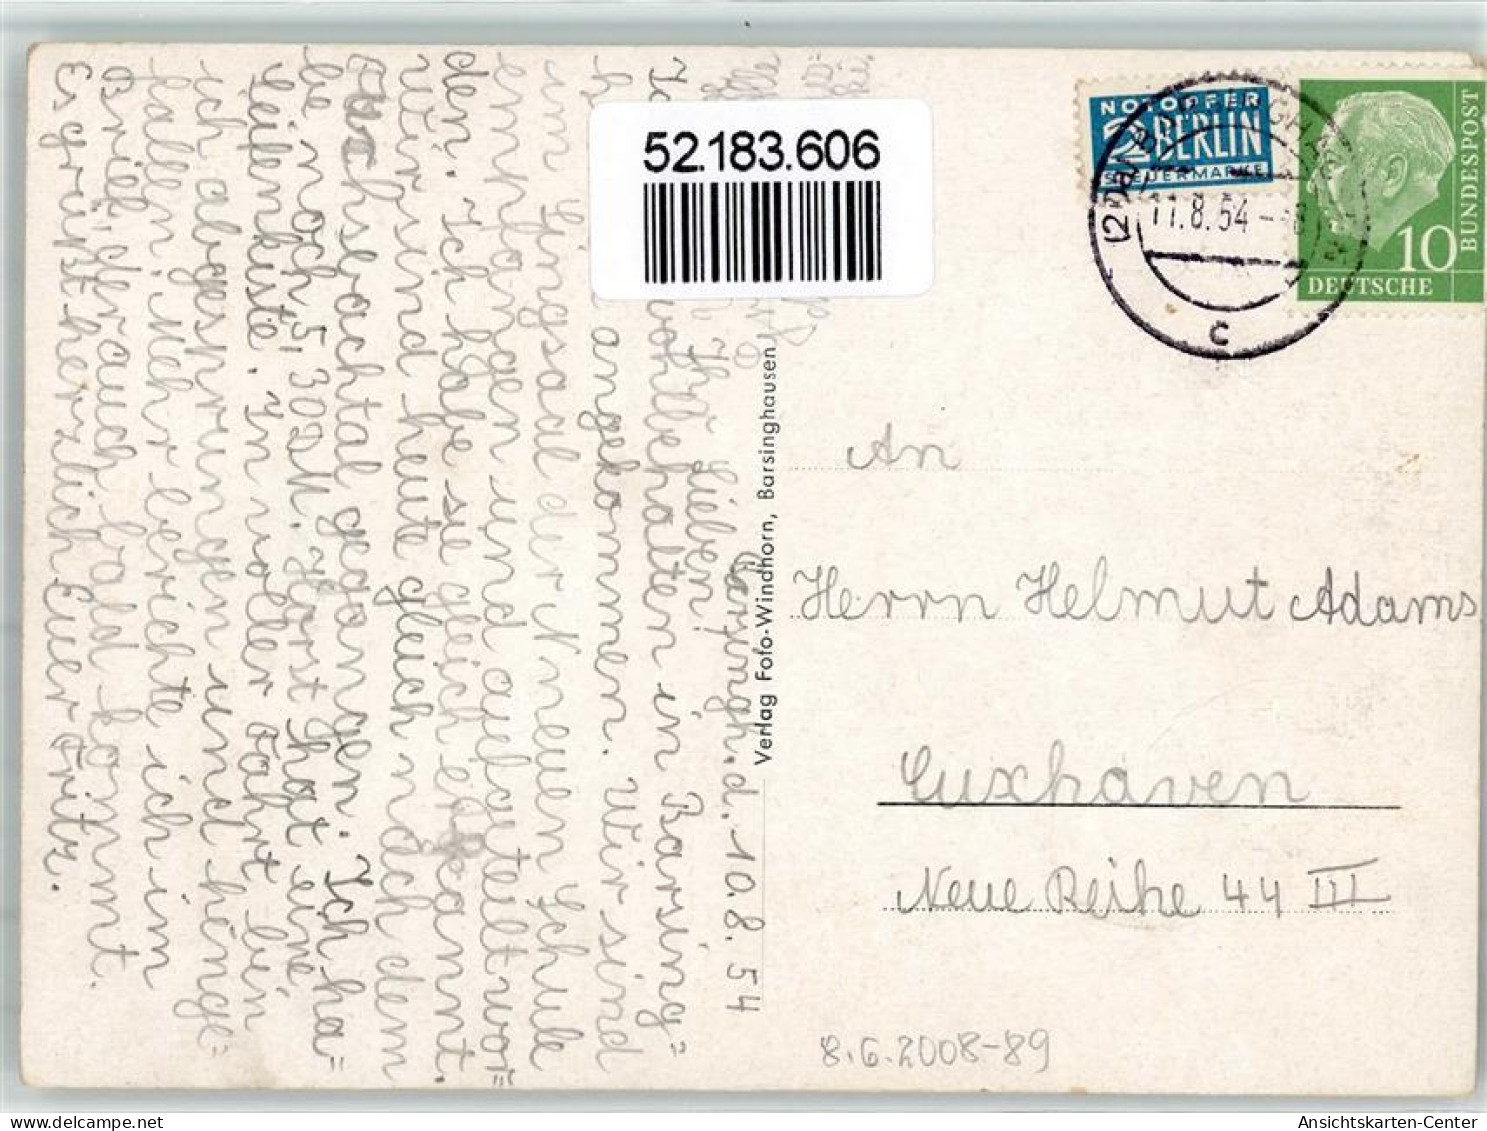 52.183.606
NOTOPFER
2 BERLIN
STEUERMARKE
11.8.54
c
10
DEUTSCHE
BUNDESPOST
Barsingh. d. 10.8.54
Ihr Lieben!
wohlbehalten in Barsing=
angekommen. Wir sind
im Singsaal der Neuen Schule
empfangen und aufgeteilt wor=
den. Ich habe sie gleich erkannt.
Wir sind heute gleich nach dem
Fuchsbachtal gegangen. Ich ha=
be noch 5,30DM. Horst hat eine
Seifenkiste. In voller Fahrt bin
ich abgesprungen und hinge=
fallen. Mehr berichte ich im
Brief, der auch bald kommt.
Es grüßt herzlich Euer Fritz.
Verlag Foto-Windhorn, Barsinghausen
An
Herrn Helmut Adams
Cuxhaven
Neue Reihe 44 III
8.6.2008-89
Ansichtskarten-Center